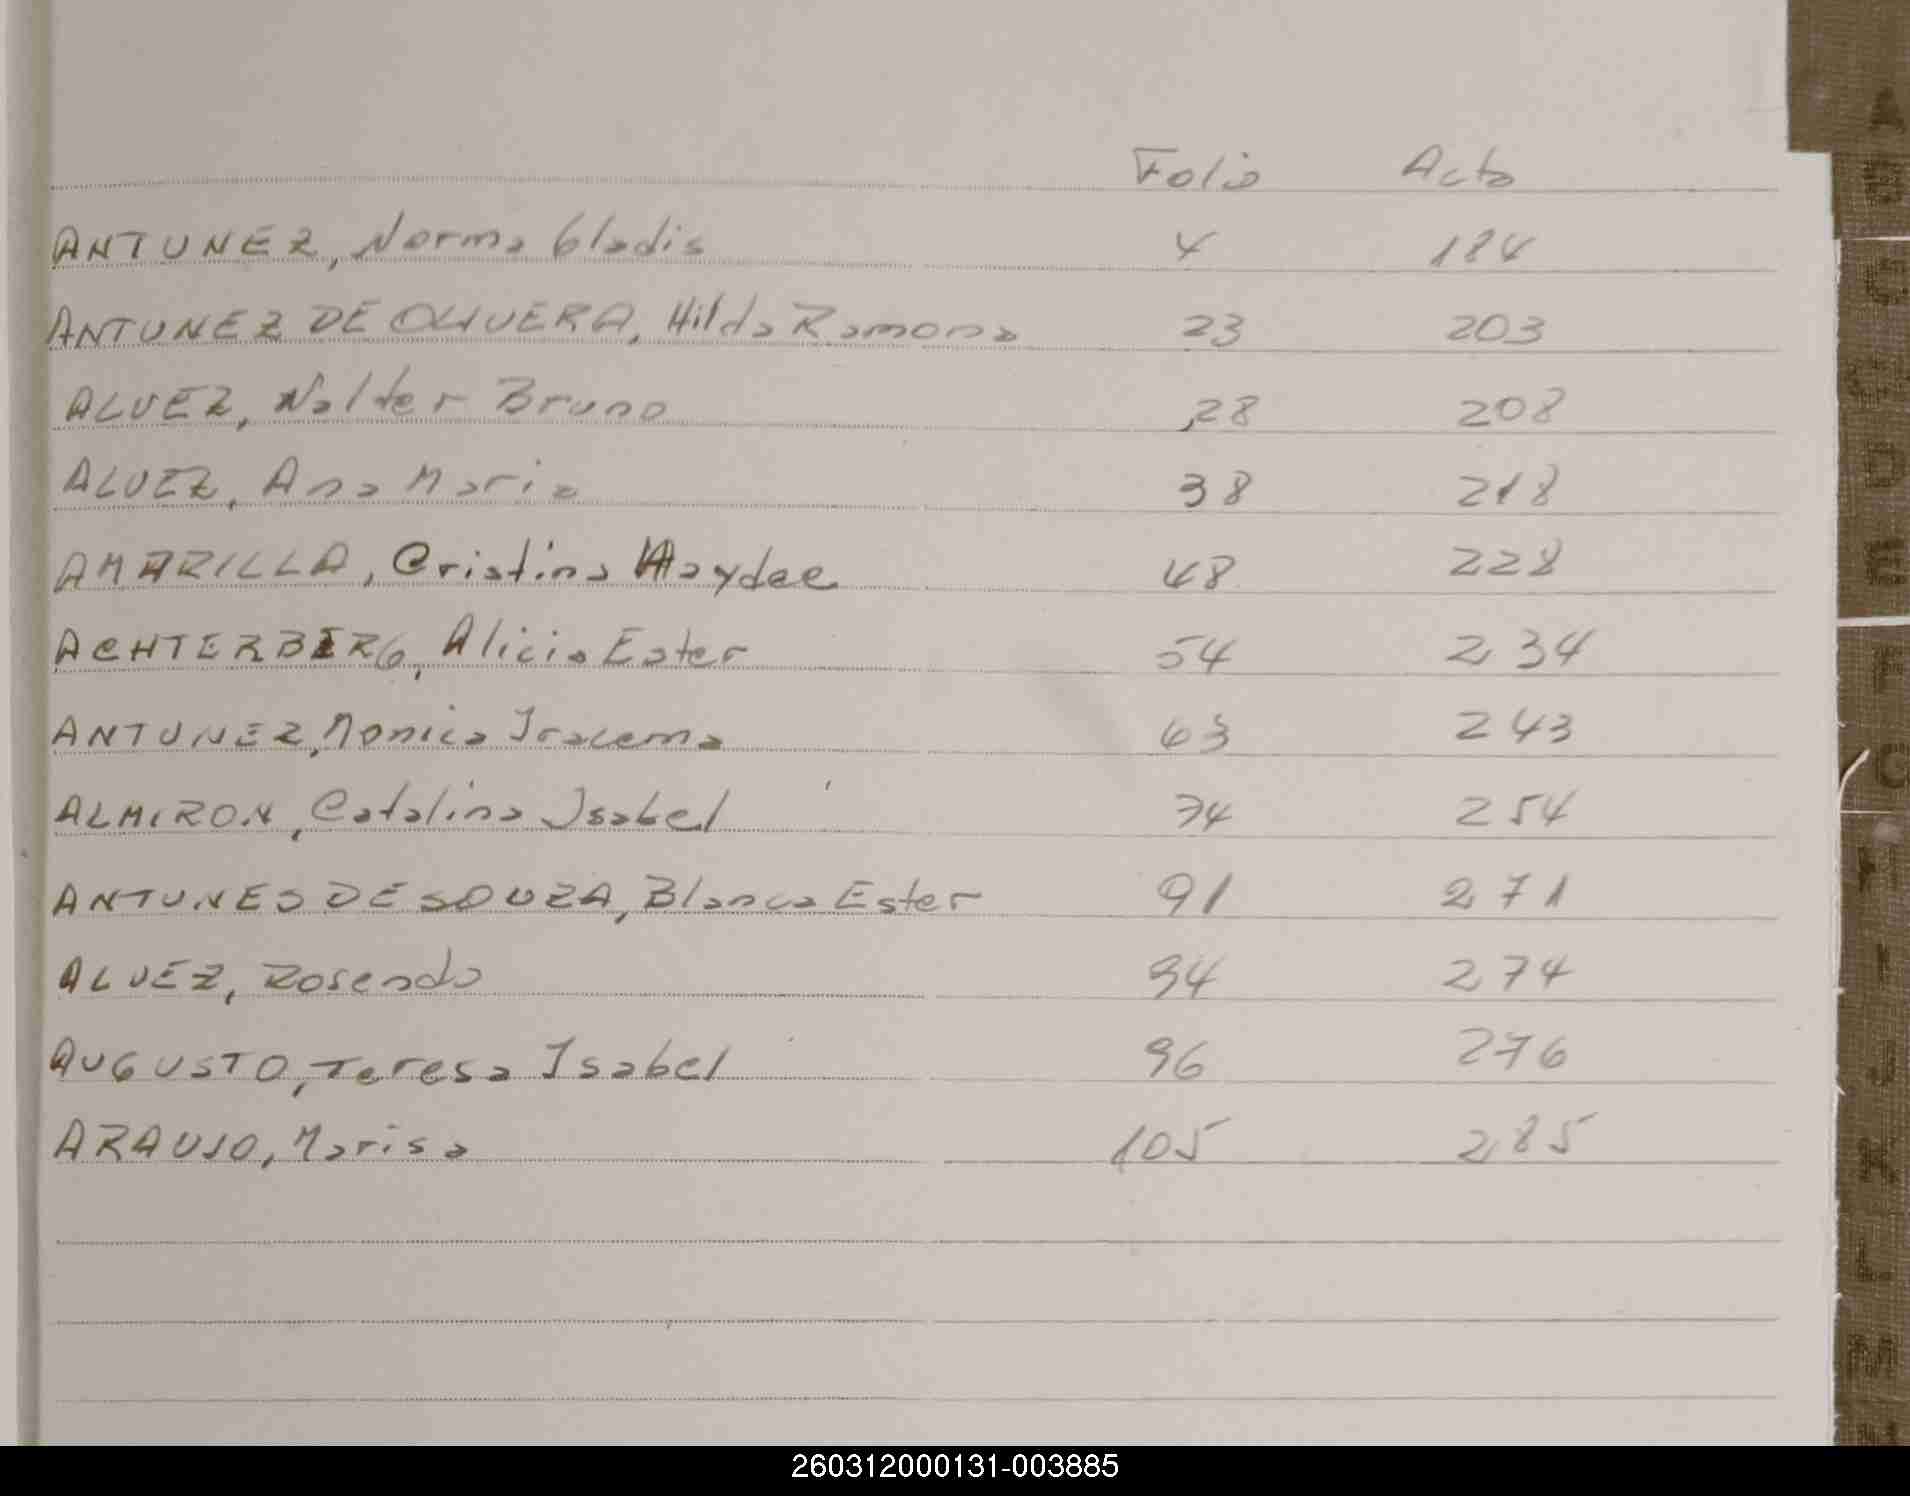 Folio Acta
ANTUNEZ, Norma Gladis 4 184
ANTUNEZ DE OLIVERA, Hilda Ramona 23 203
ALVEZ, Walter Bruno 28 208
ALVEZ, Ana Maria 38 218
AMARILLA, Cristina Haydee 48 228
ACHTERBERG, Alicia Ester 54 234
ANTUNEZ, Monica Iracema 63 243
ALMIRON, Catalina Isabel 74 254
ANTUNES DE SOUZA, Blanca Ester 91 271
ALVEZ, Rosendo 94 274
AUGUSTO, Teresa Isabel 96 276
ARAUJO, Marisa 105 285
A
B
C
D
E
F
G
I
J
K
L
M
260312000131-003885